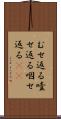 むせ返る噎
せ返る咽せ
返る